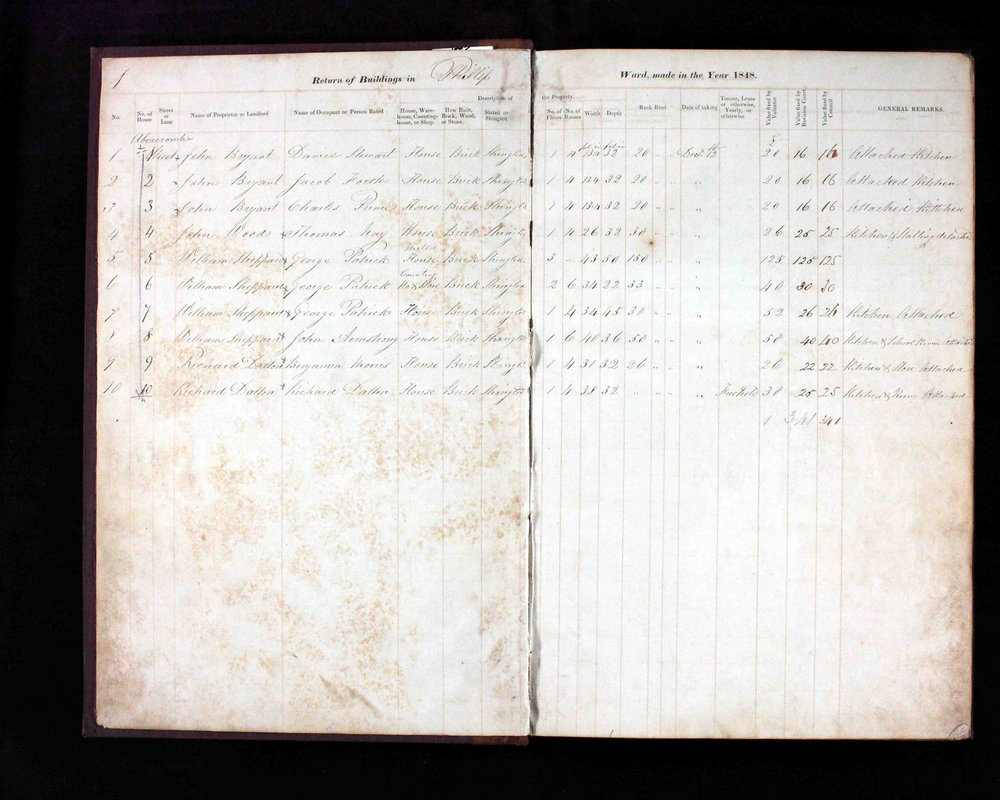 1
Return of Buildings in Phillip Ward, made in the Year 1848.
Description of the Property.
No. No. of House Street or Lane Name of Proprietor or Landlord Name of Occupant or Person Rated House, Warehouse, Counting-house, or Shop. How Built, Brick, Wood, or Stone. Slated or Shingled No. of Floors No. of Rooms Width Depth Rack Rent Date of taking Tenure, Lease or otherwise, Yearly, or otherwise Value fixed by Valuator Value fixed by Revision Court Value fixed by Council GENERAL REMARKS.
Abercrombie
1 John Bryant Daniel Stewart House Brick Shingled 1 4 13 32 20 " " Decr 13 20 16 16 Attached Kitchen
2 2 John Bryant Jacob House Brick Shingled 1 4 13 32 20 " " " 20 16 16 Attached Kitchen
3 3 John Bryant Charles Prince House Brick Shingled 1 4 13 32 20 " " " 20 16 16 Attached Kitchen
4 4 John Woods Thomas Kay House Brick Shingled 1 4 26 32 30 " " " 26 25 25 Kitchen & detached
5 5 William Sheppard George Patrick House Brick Shingled 3 " 43 50 150 " " " 125 125 125
6 6 William Sheppard George Patrick Brick Shingled 2 6 34 22 33 " " " 40 30 30
7 7 William Sheppard George Patrick House Brick Shingled 1 4 34 45 30 " " " 52 26 26 Kitchen Attached
8 8 William Sheppard John Armstrong House Brick Shingled 1 6 40 36 50 " " " 50 40 40 Kitchen & School Room Attached
9 9 Richard Dalton Benjamin House Brick Shingled 1 4 31 32 26 " " " 28 22 22 Kitchen & Store Attached
10 10 Richard Dalton Richard Dalton House Brick Shingled 1 4 38 32 " " " Freehold 30 25 25 Kitchen & Room Attached
341